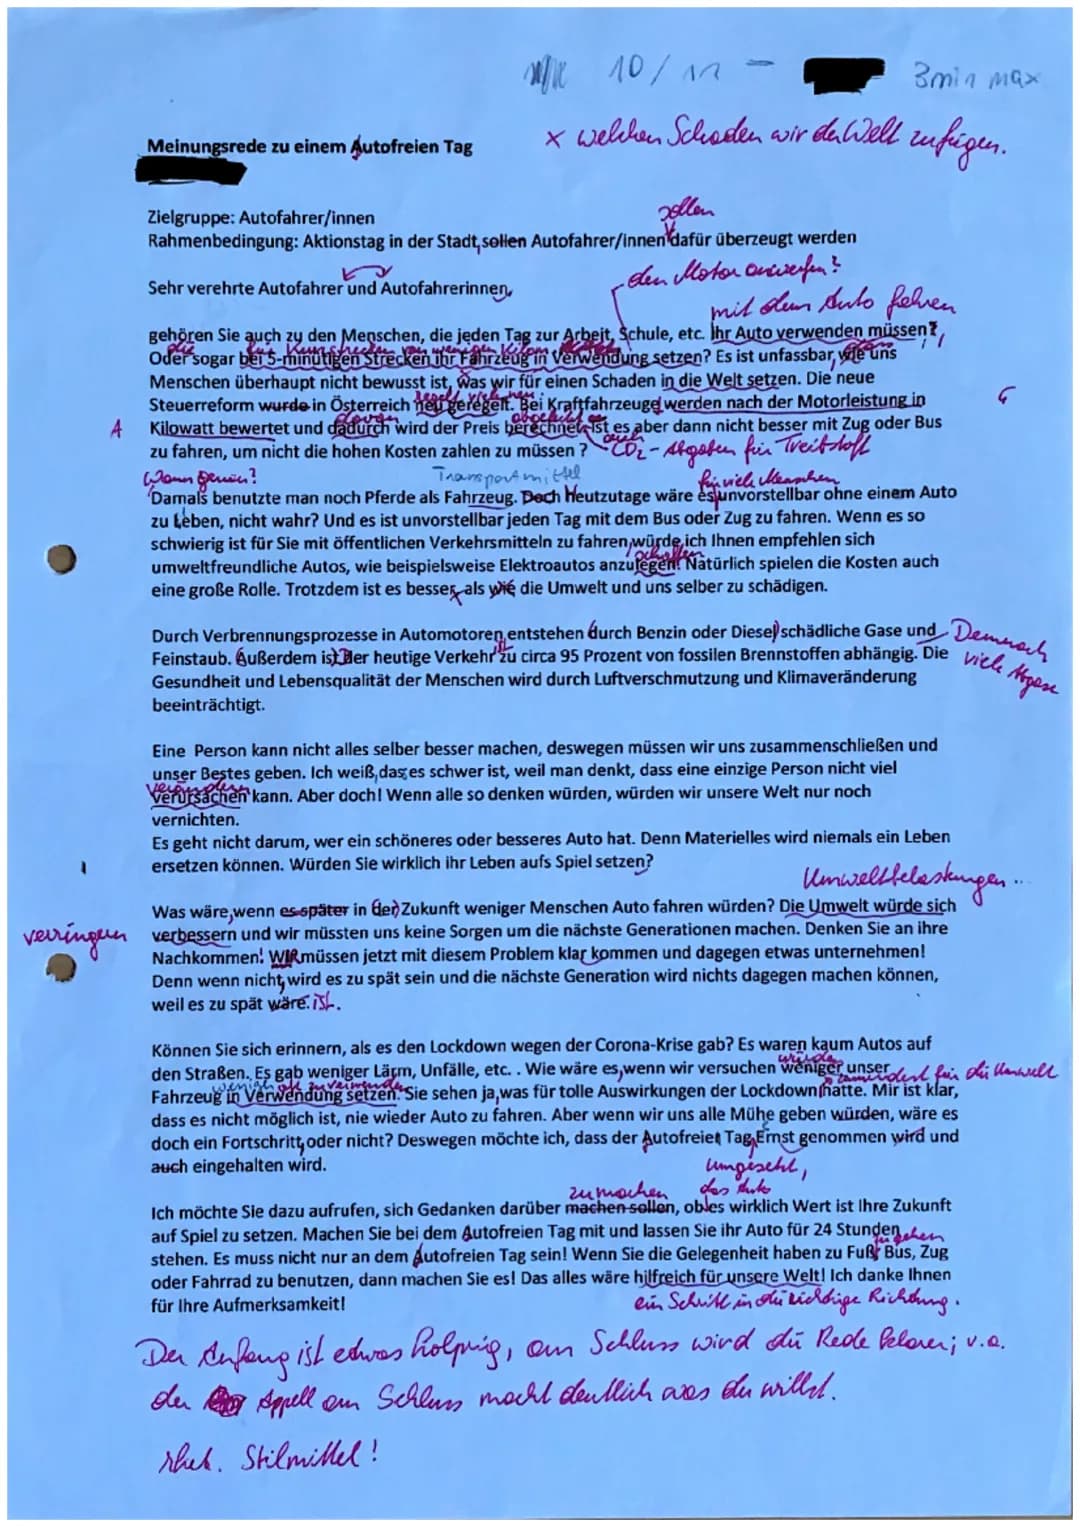 10/12 - 3min max
x welchen Schaden wir der Welt zufügen.
Meinungsrede zu einem Autofreien Tag
Zielgruppe: Autofahrer/innen
sollen
Rahmenbedingung: Aktionstag in der Stadt, sollen Autofahrer/innen dafür überzeugt werden
den Motor anwerfen?
Sehr verehrte Autofahrer und Autofahrerinnen,
mit dem Auto fahren
gehören Sie auch zu den Menschen, die jeden Tag zur Arbeit, Schule, etc. Ihr Auto verwenden müssen?
Oder sogar bei 5-minütigen Strecken ihr Fahrzeug in Verwendung setzen? Es ist unfassbar, wie uns
Menschen überhaupt nicht bewusst ist, was wir für einen Schaden in die Welt setzen. Die neue
Steuerreform wurde in Österreich neu geregelt. Bei Kraftfahrzeuge werden nach der Motorleistung in
A Kilowatt bewertet und dadurch wird der Preis berechnet. Ist es aber dann nicht besser mit Zug oder Bus
zu fahren, um nicht die hohen Kosten zahlen zu müssen? auch CO2-Abgaben für Treibstoff
Wann genau? Transportmittel für viele Menschen
Damals benutzte man noch Pferde als Fahrzeug. Doch Heutzutage wäre es unvorstellbar ohne einem Auto
zu Leben, nicht wahr? Und es ist unvorstellbar jeden Tag mit dem Bus oder Zug zu fahren. Wenn es so
schwierig ist für Sie mit öffentlichen Verkehrsmitteln zu fahren, würde ich Ihnen empfehlen sich
schaffen
umweltfreundliche Autos, wie beispielsweise Elektroautos anzulegen. Natürlich spielen die Kosten auch
eine große Rolle. Trotzdem ist es besser, als wie die Umwelt und uns selber zu schädigen.
Durch Verbrennungsprozesse in Automotoren entstehen durch Benzin oder Diesel schädliche Gase und Demnach
Feinstaub. Außerdem ist der heutige Verkehr zu circa 95 Prozent von fossilen Brennstoffen abhängig. Die viele Abgase
Gesundheit und Lebensqualität der Menschen wird durch Luftverschmutzung und Klimaveränderung
beeinträchtigt.
Eine Person kann nicht alles selber besser machen, deswegen müssen wir uns zusammenschließen und
unser Bestes geben. Ich weiß, das es schwer ist, weil man denkt, dass eine einzige Person nicht viel
verändern
verursachen kann. Aber doch! Wenn alle so denken würden, würden wir unsere Welt nur noch
vernichten.
Es geht nicht darum, wer ein schöneres oder besseres Auto hat. Denn Materielles wird niemals ein Leben
ersetzen können. Würden Sie wirklich ihr Leben aufs Spiel setzen?
Umweltbelastungen ..
Was wäre, wenn es später in der Zukunft weniger Menschen Auto fahren würden? Die Umwelt würde sich
verringern verbessern und wir müssten uns keine Sorgen um die nächste Generationen machen. Denken Sie an ihre
Nachkommen! WIR müssen jetzt mit diesem Problem klar kommen und dagegen etwas unternehmen!
Denn wenn nicht, wird es zu spät sein und die nächste Generation wird nichts dagegen machen können,
weil es zu spät wäre. ist.
Können Sie sich erinnern, als es den Lockdown wegen der Corona-Krise gab? Es waren kaum Autos auf
würden
den Straßen. Es gab weniger Lärm, Unfälle, etc. . Wie wäre es, wenn wir versuchen weniger unser zumindest für die Umwelt
wenig oft zu verwenden
Fahrzeug in Verwendung setzen. Sie sehen ja, was für tolle Auswirkungen der Lockdown hatte. Mir ist klar,
dass es nicht möglich ist, nie wieder Auto zu fahren. Aber wenn wir uns alle Mühe geben würden, wäre es
doch ein Fortschritt, oder nicht? Deswegen möchte ich, dass der Autofreier Tag Ernst genommen wird und
auch eingehalten wird. umgesetzt,
zu machen das Auto
Ich möchte Sie dazu aufrufen, sich Gedanken darüber machen sollen, ob es wirklich Wert ist Ihre Zukunft
auf Spiel zu setzen. Machen Sie bei dem Autofreien Tag mit und lassen Sie ihr Auto für 24 Stunden
zu gehen
stehen. Es muss nicht nur an dem Autofreien Tag sein! Wenn Sie die Gelegenheit haben zu Fuß, Bus, Zug
oder Fahrrad zu benutzen, dann machen Sie es! Das alles wäre hilfreich für unsere Welt! Ich danke Ihnen
für Ihre Aufmerksamkeit! ein Schritt in die richtige Richtung.
Der Anfang ist etwas holprig, am Schluss wird die Rede klarer; v.a.
der Appell am Schluss macht deutlich was du willst.
rhet. Stilmittel!